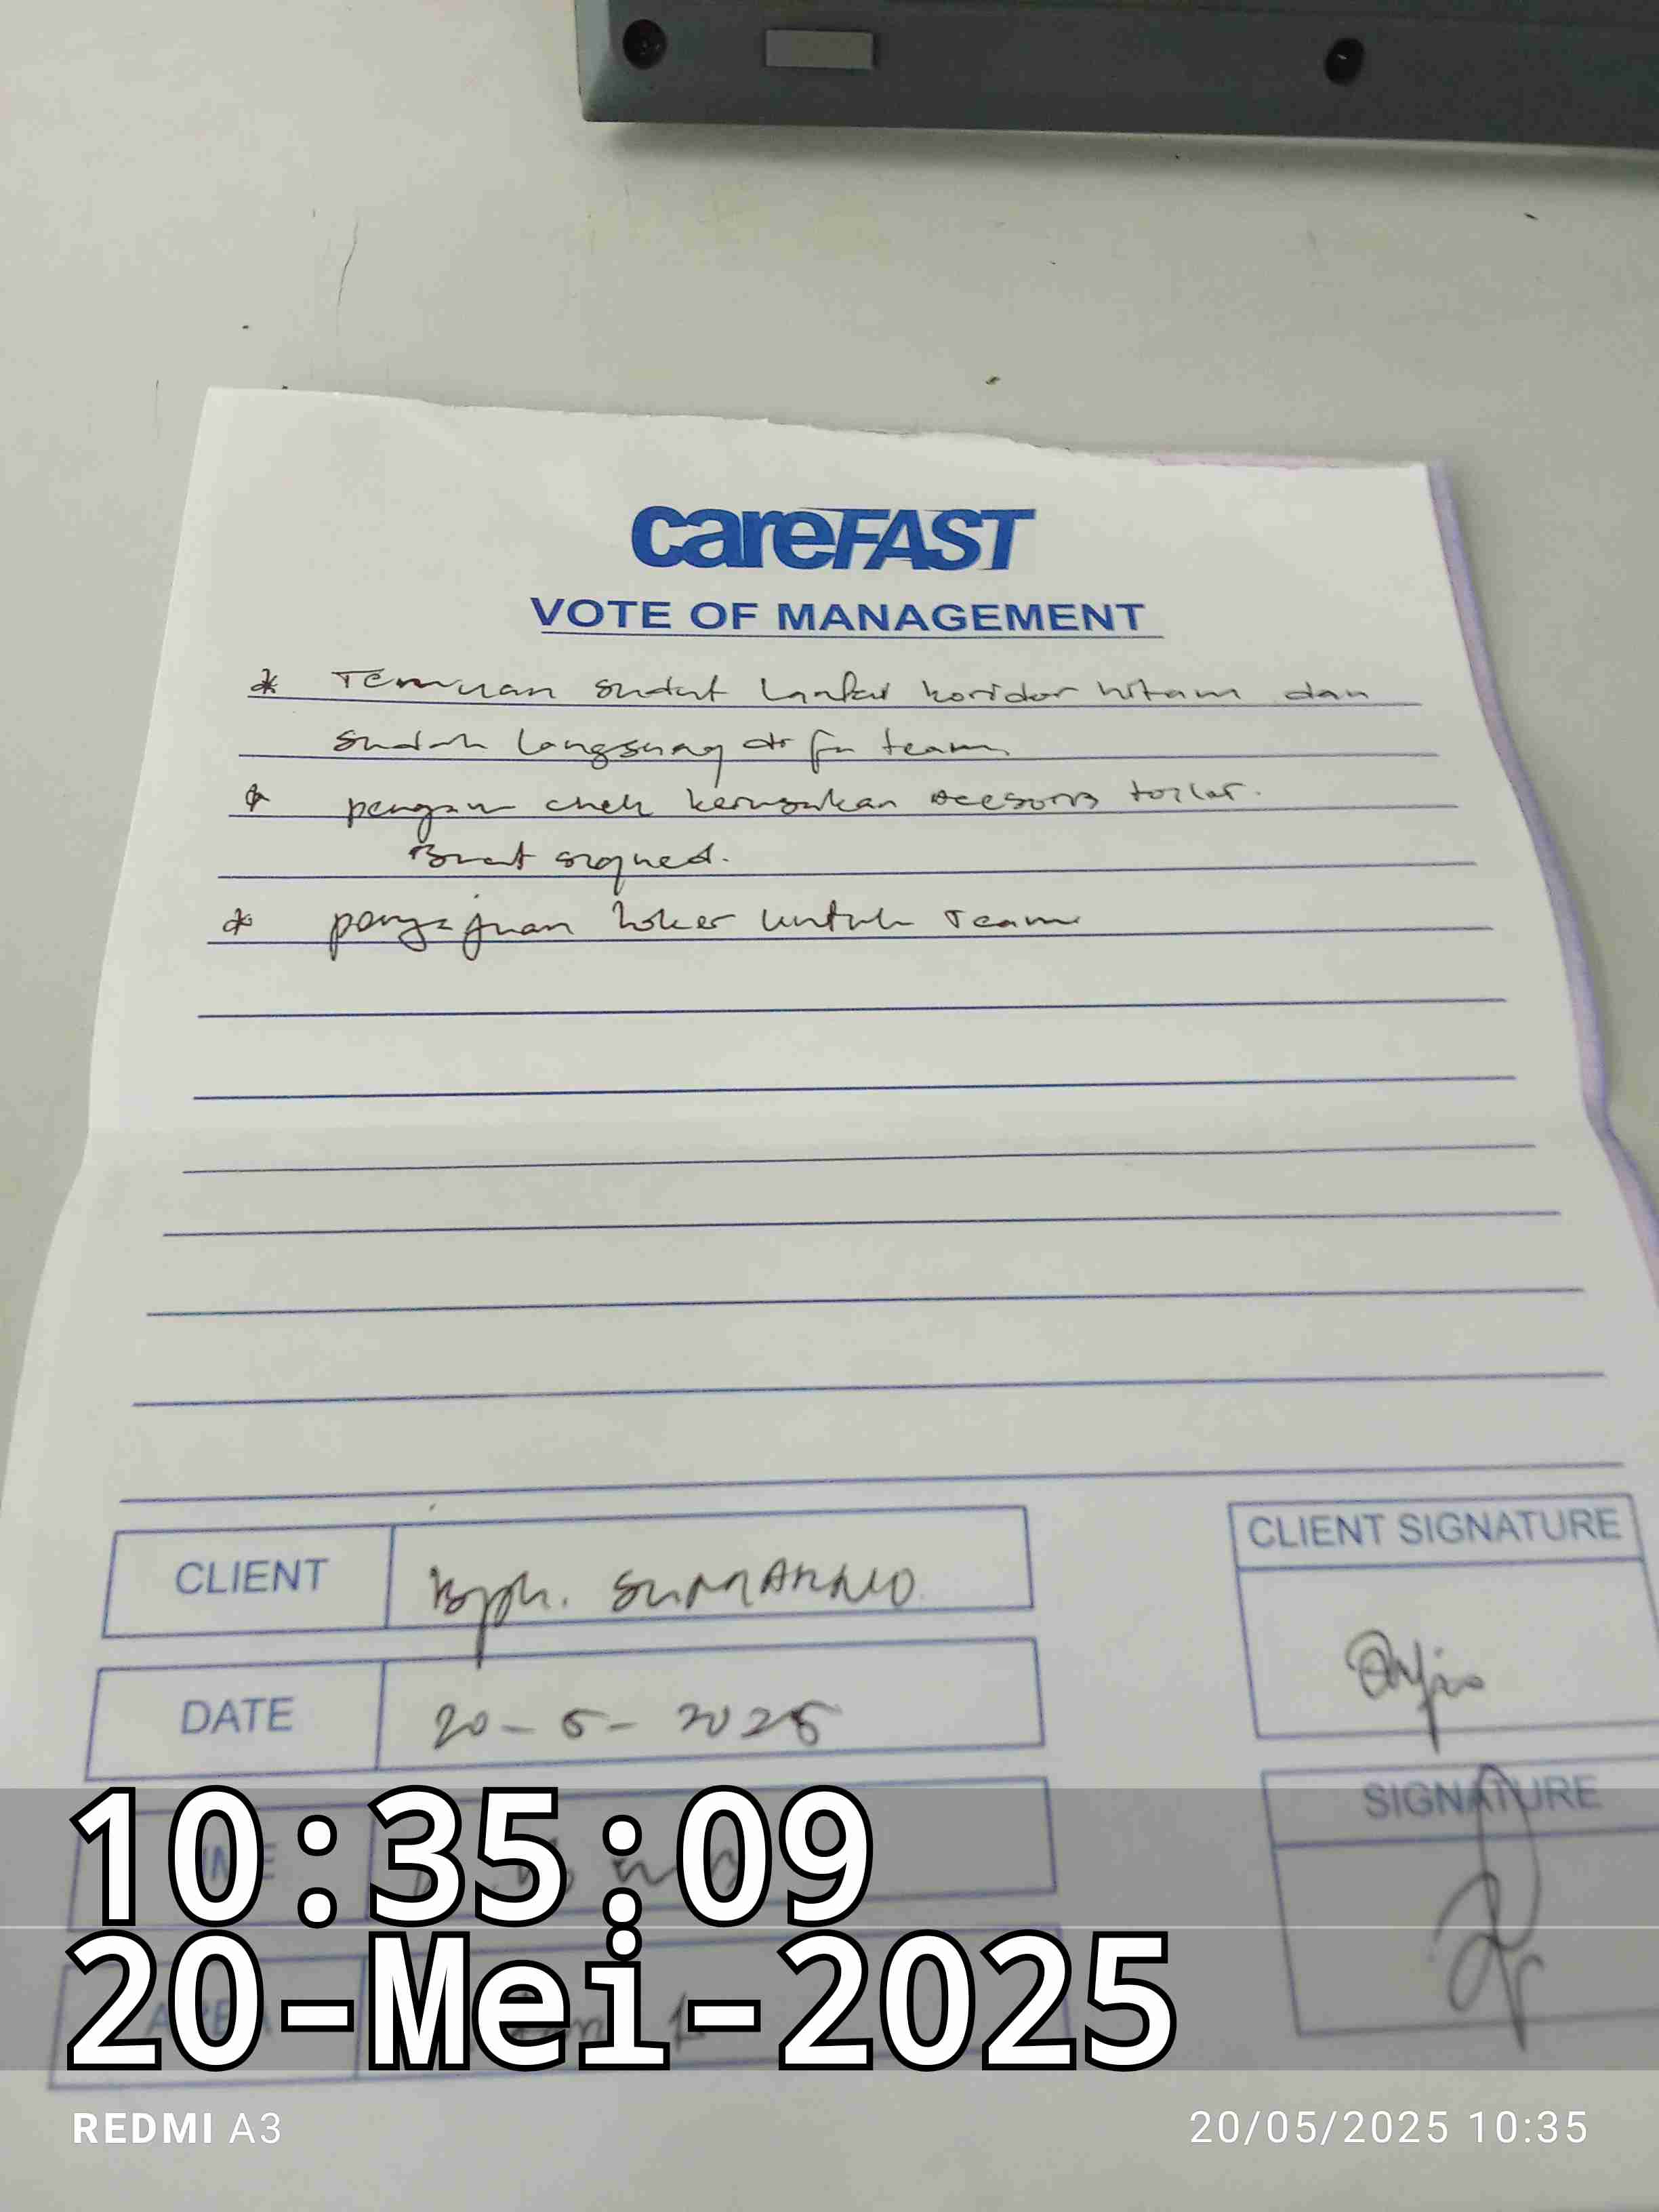 careFAST
VOTE OF MANAGEMENT
* Temuan sudut lantai koridor hitam dan
sudah langsung di fu team.
* chek kerusakan toilet.
Buat signed.
* pengajuan loker untuk Team
CLIENT
Bpk. SUMARNO
CLIENT SIGNATURE
DATE
20-5-2025
SIGNATURE
10:35:09
20-Mei-2025
REDMI A3
20/05/2025 10:35